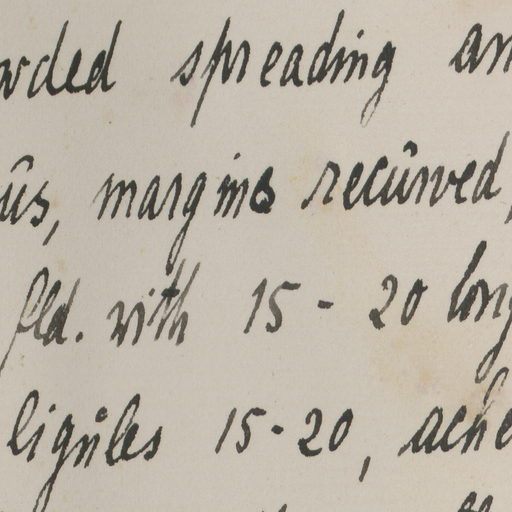 wded spreading an
ûs, margins recûrved,
fld. with 15 - 20 long
ligûles 15-20, ache